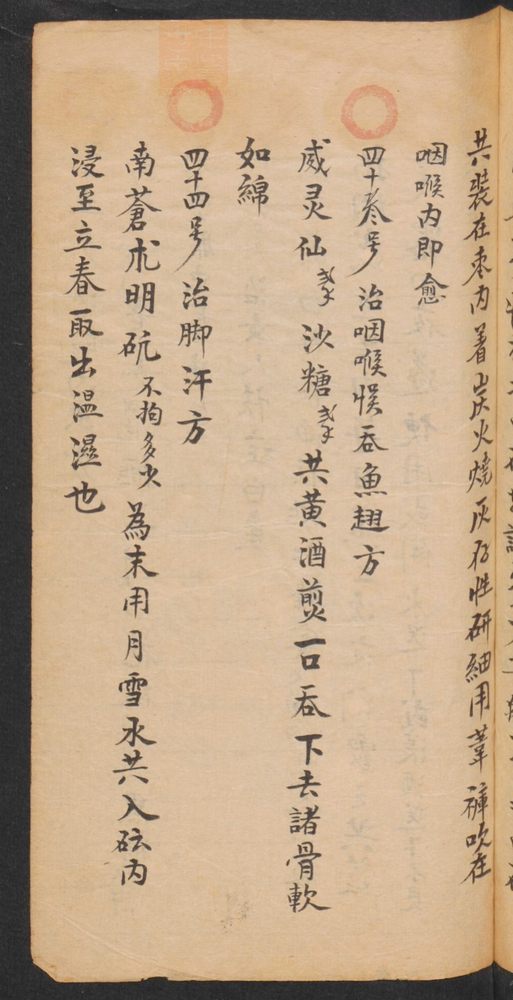 共裝在枣内着炭火燒灰存性研細用葦褲吹在
咽喉内即愈
四十叁号 治咽喉悮吞魚翅方
威灵仙 沙糖 共黄酒煎一口吞下去諸骨軟
如綿
四十四号 治脚汗方
南蒼朮明矾不拘多少為末用月雪水共入砿内
浸至立春取出温濕也